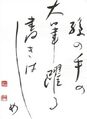 孫の手の
大筆躍る
書きはじめ